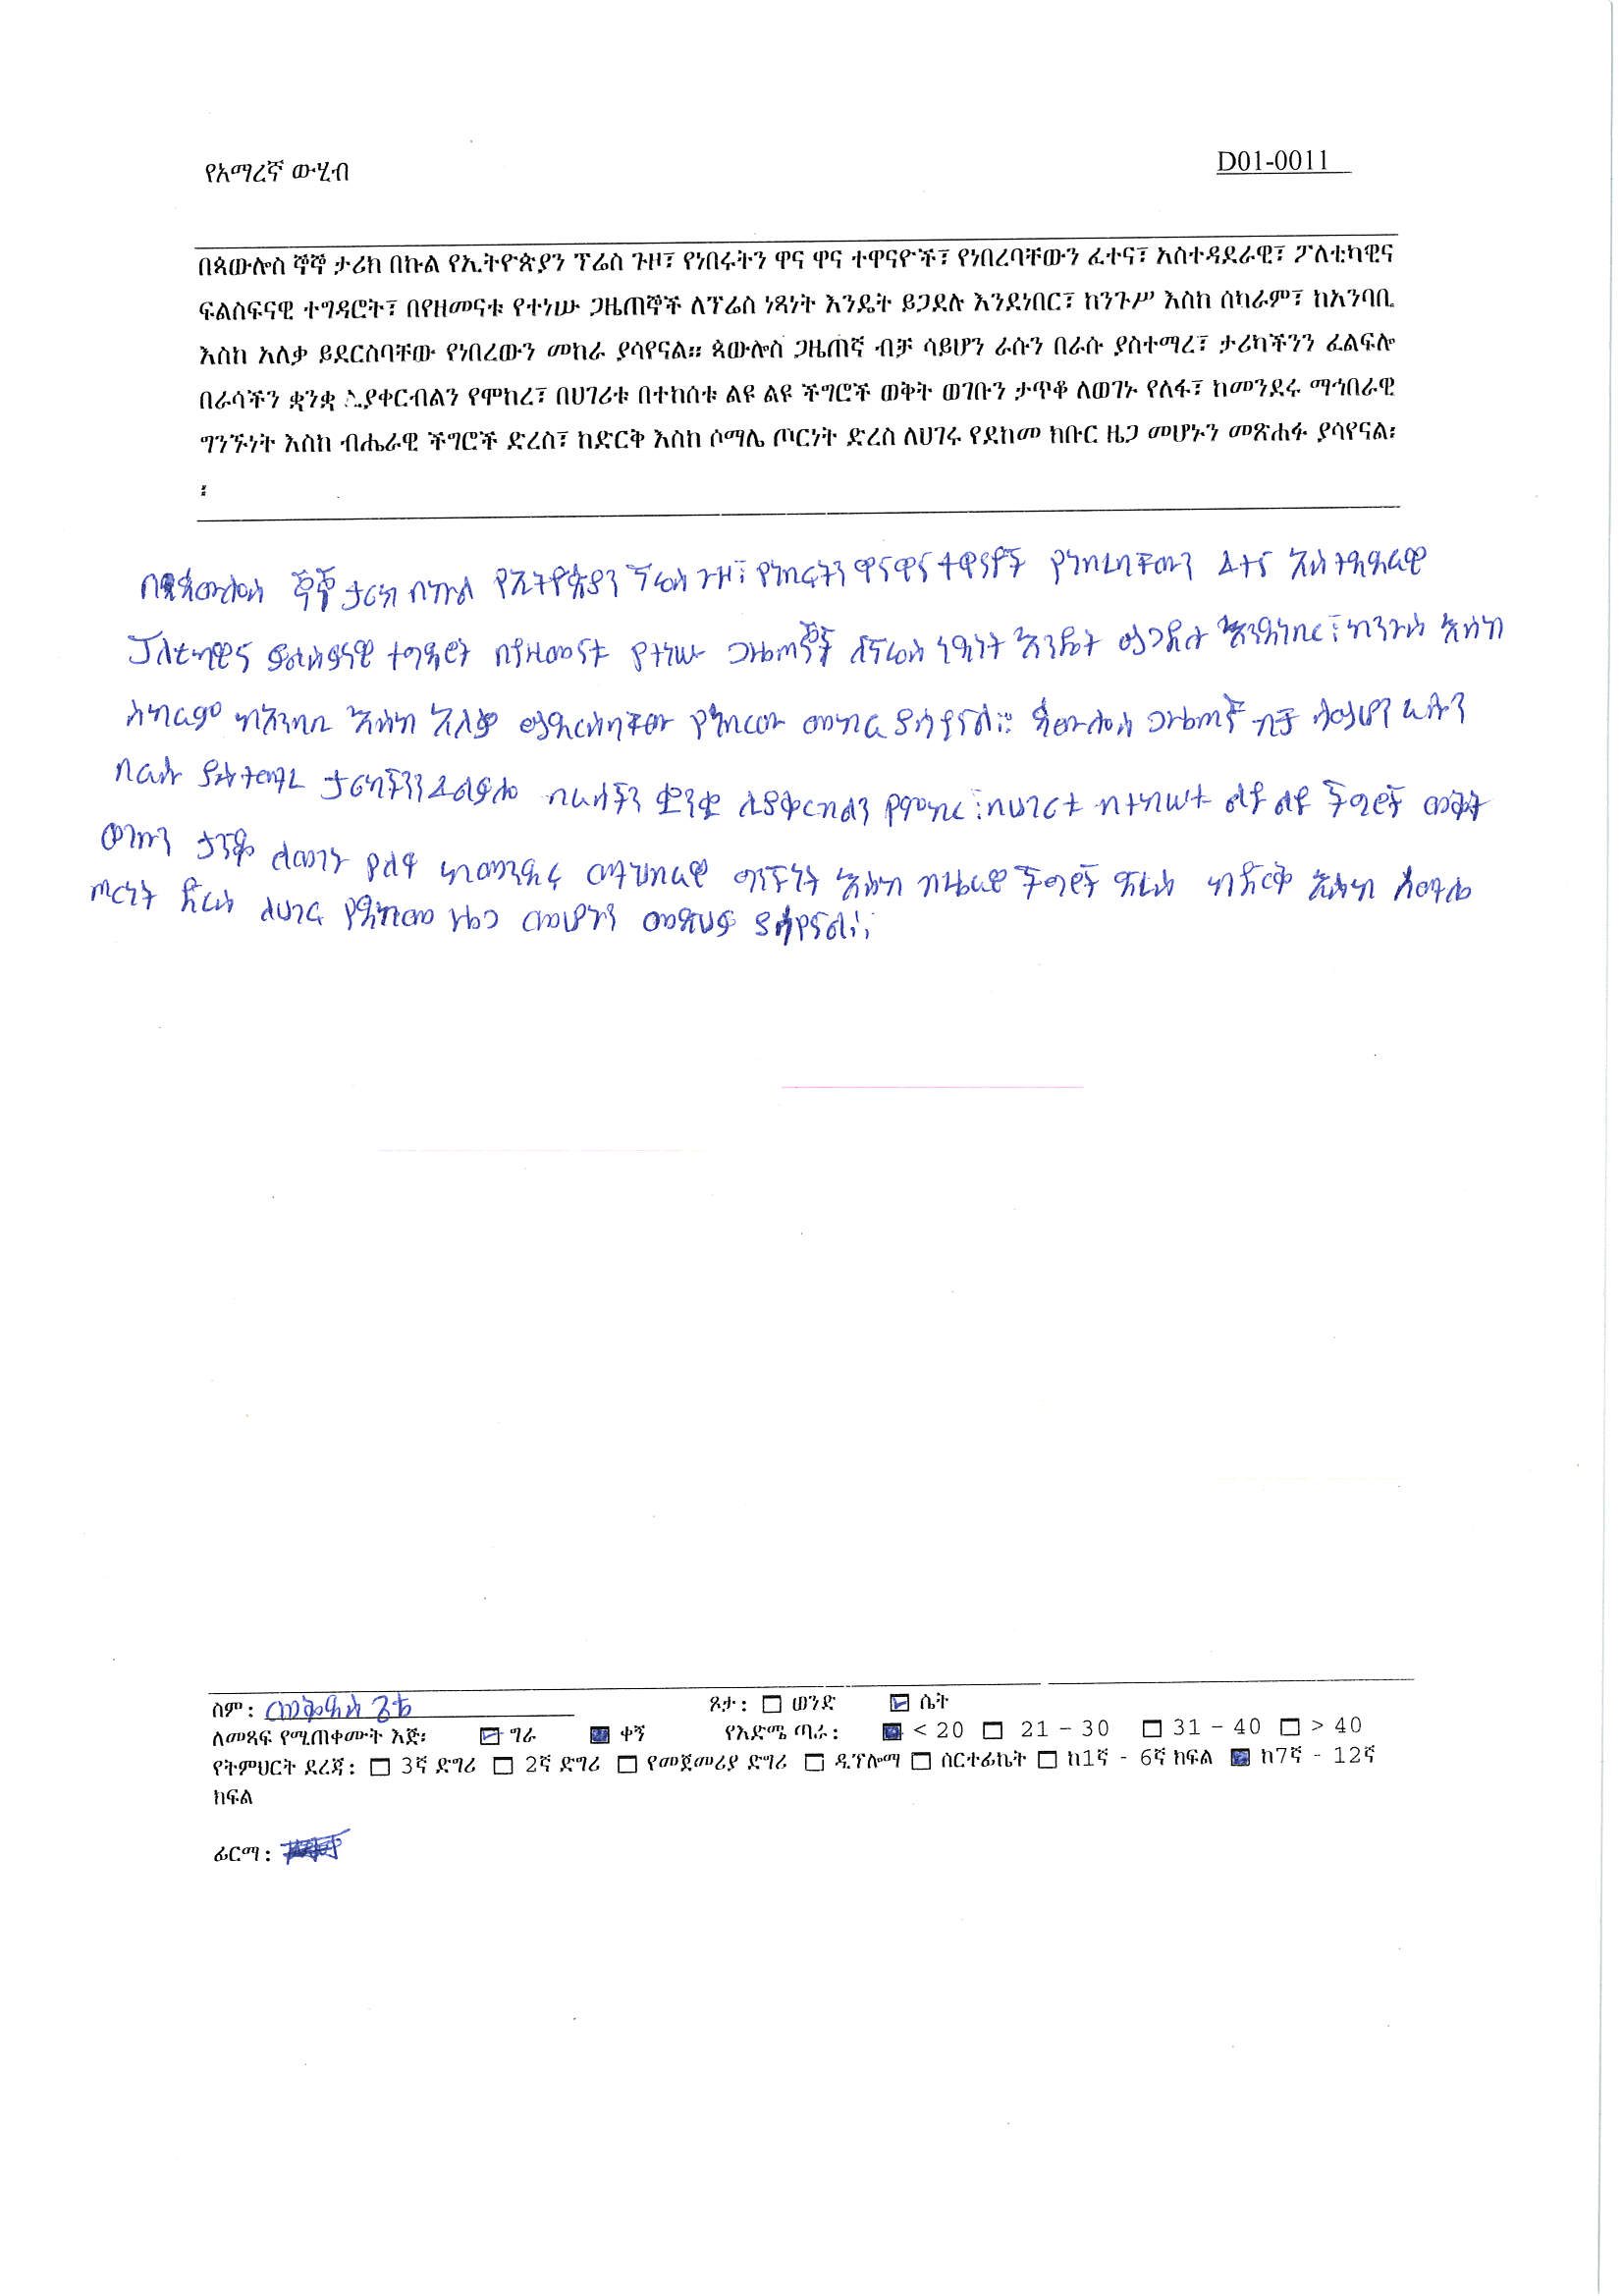 የአማረኛ ውሂብ D01-0011
በጳውሎስ ኞኞ ታሪክ በኩል የኢትዮጵያን ፕሬስ ጉዞ፣ የነበሩትን ዋና ዋና ተዋናዮች፣ የነበረባቸውን ፈተና፣ አስተዳደራዊ፣ ፖለቲካዊና
ፍልስፍናዊ ተግዳሮት፣ በየዘመናቱ የተነሡ ጋዜጠኞች ለፕሬስ ነጻነት እንዴት ይጋደሉ እንደነበር፣ ከንጉሥ እስከ ሰካራም፣ ከአንባቢ
እስከ አለቃ ይደርስባቸው የነበረውን መከራ ያሳየናል። ጳውሎስ ጋዜጠኛ ብቻ ሳይሆን ራሱን በራሱ ያስተማረ፣ ታሪካችንን ፈልፍሎ
በራሳችን ቋንቋ ሊያቀርብልን የሞከረ፣ በሀገሪቱ በተከሰቱ ልዩ ልዩ ችግሮች ወቅት ወገቡን ታጥቆ ለወገኑ የለፋ፣ ከመንደሩ ማኅበራዊ
ግንኙነት እስከ ብሔራዊ ችግሮች ድረስ፣ ከድርቅ እስከ ሶማሌ ጦርነት ድረስ ለሀገሩ የደከመ ክቡር ዜጋ መሆኑን መጽሐፉ ያሳየናል፡
፡
በጳውሎስ ኞኞ ታሪክ በኩል የኢትዮጵያን ፕሬስ ጉዞ፣ የነበሩትን ዋናዋና ተዋናዮች የነበረባቸውን ፈተና አስተዳዳራዊ
ፓለቲካዊና ፍልስፍናዊ ተግዳሮት በየዘመናት የተነሡ ጋዜጠኞች ለፕሬስ ነፃነት እንዴት ይጋደሉ እንደነበር፣ ከንጉስ እስከ
ሰካራም ከአንባቢ እስከ አለቃ ይደርስባቸው የነበረው መከራ ያሳየናል። ጳውሎስ ጋዜጠኛ ብቻ ሳይሆን ራሱን
በራሱ ያስተማረ ታሪካችንን ፈልፍሎ በራሳችን ቋንቋ ሊያቀርብልን የሞከረ፣ በሀገሪቱ በተከሠቱ ልዩ ልዩ ችግሮች ወቅት
ወገቡን ታጥቆ ለወገኑ የለፋ ከመንደሩ ማህበራዊ ግንኙነት እስከ ብሄራዊ ችግሮች ድረስ ከድርቅ እስከ ሶማሌ
ጦርነት ድረስ ለሀገሩ የደከመ ዜጋ መሆኑን መጽሀፉ ያሳየናል፡፡
ስም: ጾታ: ወንድ ሴት
ለመጻፍ የሚጠቀሙት እጅ፡ ግራ ቀኝ የእድሜ ጣራ: < 20 21 – 30 31 – 40 > 40
የትምህርት ደረጃ: 3ኛ ድግሪ 2ኛ ድግሪ የመጀመሪያ ድግሪ ዲፕሎማ ሰርተፊኬት ከ1ኛ - 6ኛ ክፍል ከ7ኛ - 12ኛ
ክፍል
ፊርማ: